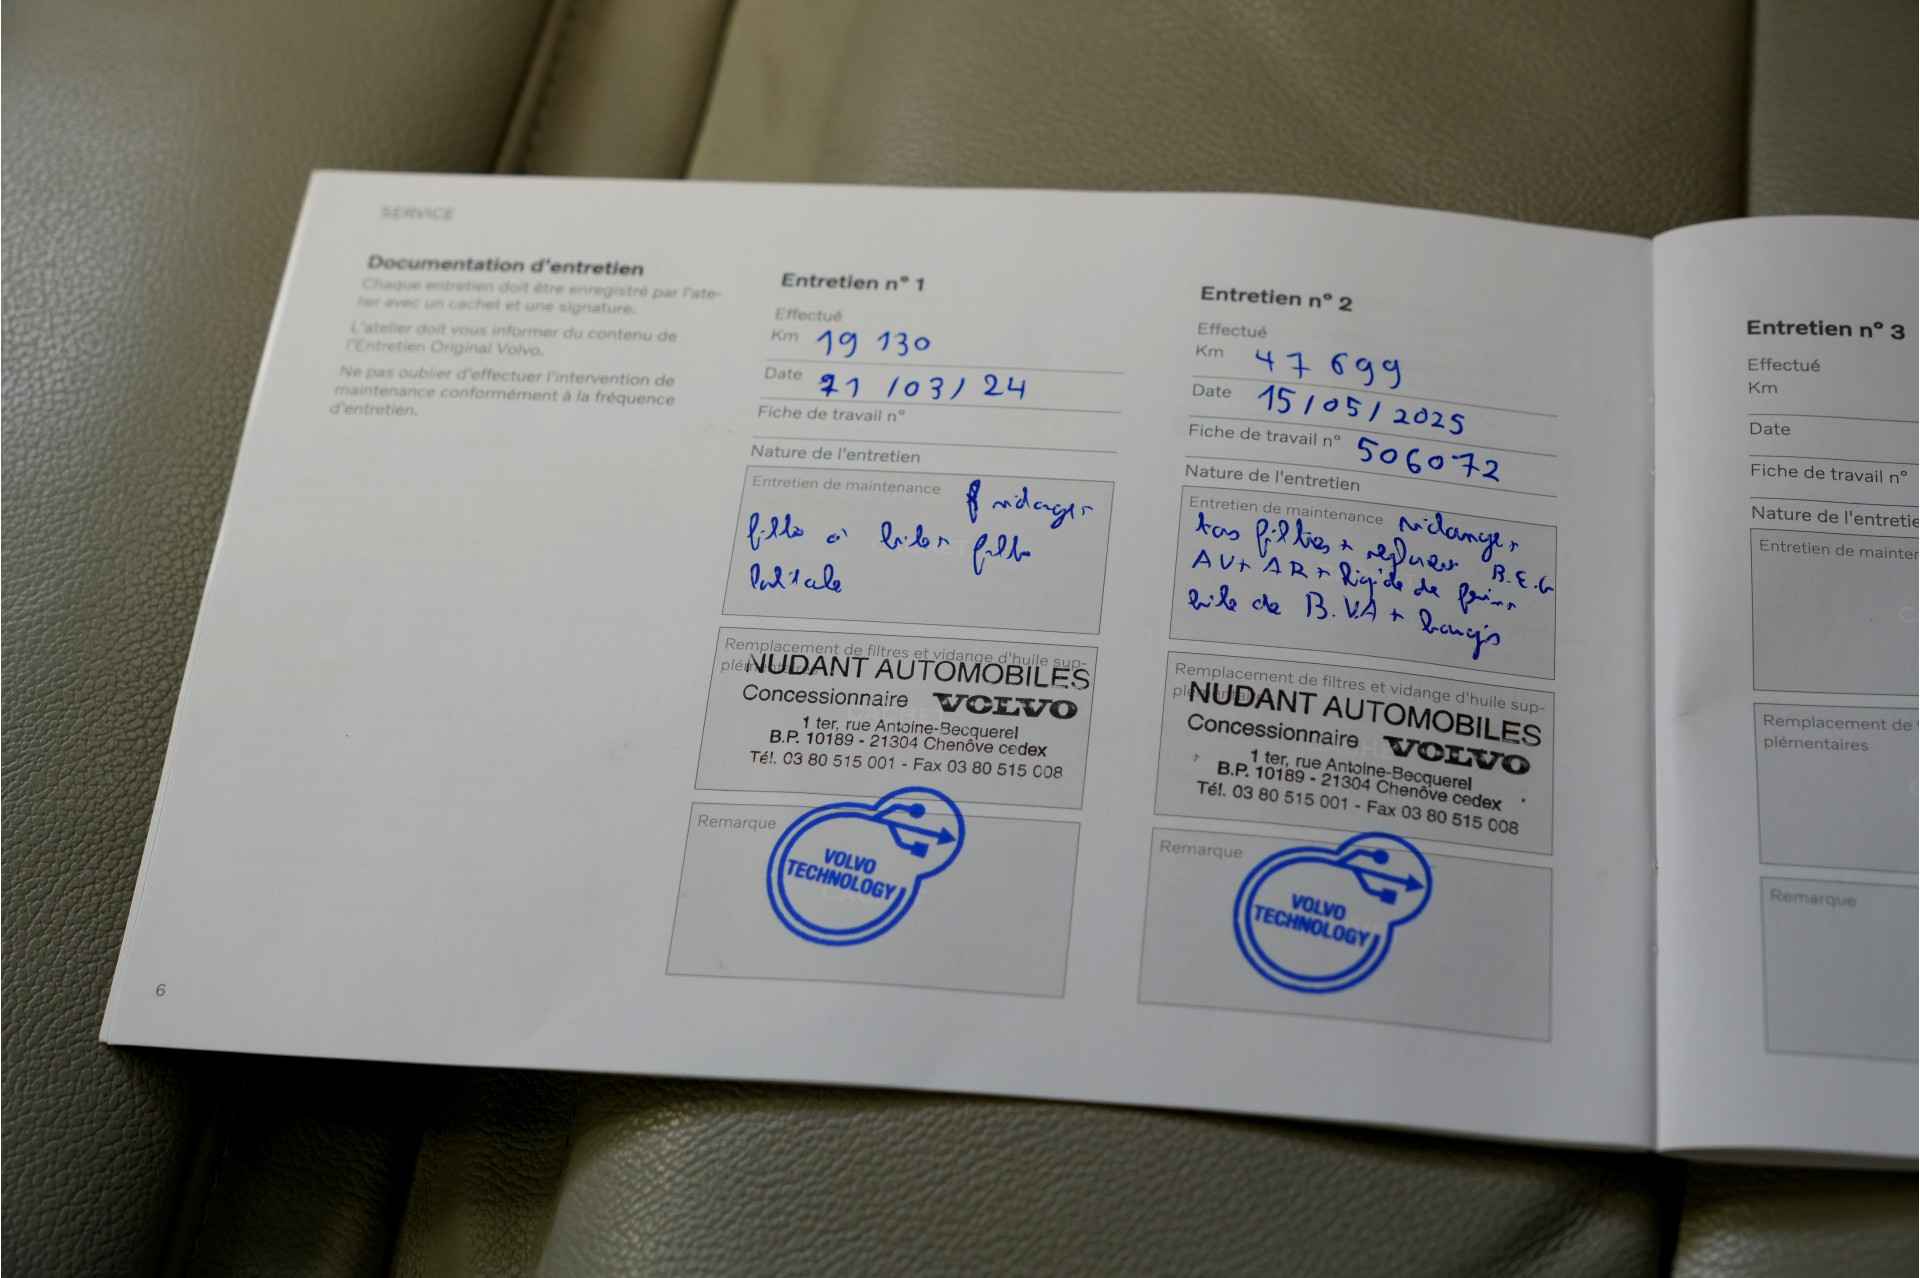 SERVICE
Documentation d'entretien
Chaque entretien doit être enregistré par l'ate-
lier avec un cachet et une signature.
L'atelier doit vous informer du contenu de
l'Entretien Original Volvo.
Ne pas oublier d'effectuer l'intervention de
maintenance conformément à la fréquence
d'entretien.
6
Entretien n° 1
Effectué
Km 19 130
Date 21/03/24
Fiche de travail n°
Nature de l'entretien
Entretien de maintenance
vidange +
filtre à huile + filtre
habitacle
Remplacement de filtres et vidange d'huile sup-
NUDANT AUTOMOBILES
Concessionnaire VOLVO
1 ter, rue Antoine-Becquerel
B.P. 10189 - 21304 Chenôve cedex
Tél. 03 80 515 001 - Fax 03 80 515 008
Remarque
VOLVO
TECHNOLOGY
Entretien n° 2
Effectué
Km 47 699
Date 15/05/2025
Fiche de travail n° 506072
Nature de l'entretien
Entretien de maintenance vidange +
tous filtres +
AV + AR + liquide de frein +
huile de B.V.A + bougies
Remplacement de filtres et vidange d'huile sup-
NUDANT AUTOMOBILES
Concessionnaire VOLVO
1 ter, rue Antoine-Becquerel
B.P. 10189 - 21304 Chenôve cedex
Tél. 03 80 515 001 - Fax 03 80 515 008
Remarque
VOLVO
TECHNOLOGY
Entretien n° 3
Effectué
Km
Date
Fiche de travail n°
Nature de l'entretie
Entretien de mainter
Remplacement de
plémentaires
Remarque